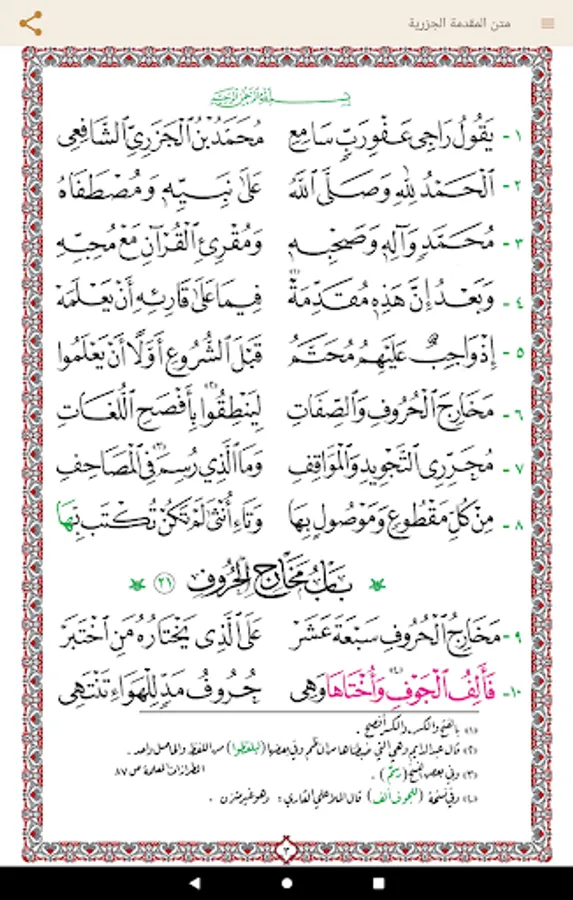 متن المقدمة الجزرية
بِسْمِ اللَّهِ الرَّحْمَنِ الرَّحِيمِ
١- يَقُولُ رَاجِي عَفْوِ رَبٍّ سَامِعِ مُحَمَّدُ بْنُ الْجَزَرِيِّ الشَّافِعِي
٢- الْحَمْدُ لِلَّهِ وَصَلَّى اللَّهُ عَلَى نَبِيِّهِ وَمُصْطَفَاهُ
٣- مُحَمَّدٍ وَآلِهِ وَصَحْبِهِ وَمُقْرِئِ الْقُرْآنِ مَعْ مُحِبِّهِ
٤- وَبَعْدُ إِنَّ هَذِهِ مُقَدِّمَةْ (١) فِيمَا عَلَى قَارِئِهِ أَنْ يَعْلَمَهْ
٥- إِذْ وَاجِبٌ عَلَيْهِمُ مُحَتَّمُ قَبْلَ الشُّرُوعِ أَوَّلًا أَنْ يَعْلَمُوا
٦- مَخَارِجَ الْحُرُوفِ وَالصِّفَاتِ لِيَنْطِقُوا (٢) بِأَفْصَحِ اللُّغَاتِ
٧- مُحَرِّرِي التَّجْوِيدِ وَالْمَوَاقِفِ وَمَا الَّذِي رُسِمَ (٣) فِي الْمَصَاحِفِ
٨- مِنْ كُلِّ مَقْطُوعٍ وَمَوْصُولٍ بِهَا وَتَاءِ أُنْثَى لَمْ تَكُنْ تُكْتَبْ بِهَا
بَابُ مَخَارِجِ الْحُرُوفِ (٢١)
٩- مَخَارِجُ الْحُرُوفِ سَبْعَةَ عَشَرْ عَلَى الَّذِي يَخْتَارُهُ مَنِ اخْتَبَرْ
١٠- فَأَلِفُ الْجَوْفِ (٤) وَأُخْتَاهَا وَهِي حُرُوفُ مَدٍّ لِلْهَوَاءِ تَنْتَهِي
(١) بالفتح والكسر، والكسر أفصح.
(٢) قال عبد الدايم وهي التي ضبطناها من الناظم وفي بعضها (ليلفظوا) من اللفظ والحاصل واحد.
الطرازات المعلمة ص ٨٧
(٣) وفي بعض النسخ (رسّم).
(٤) وفي نسخة (للجوف ألف) قال الملا علي القاري: وهو غير متزن.
٣